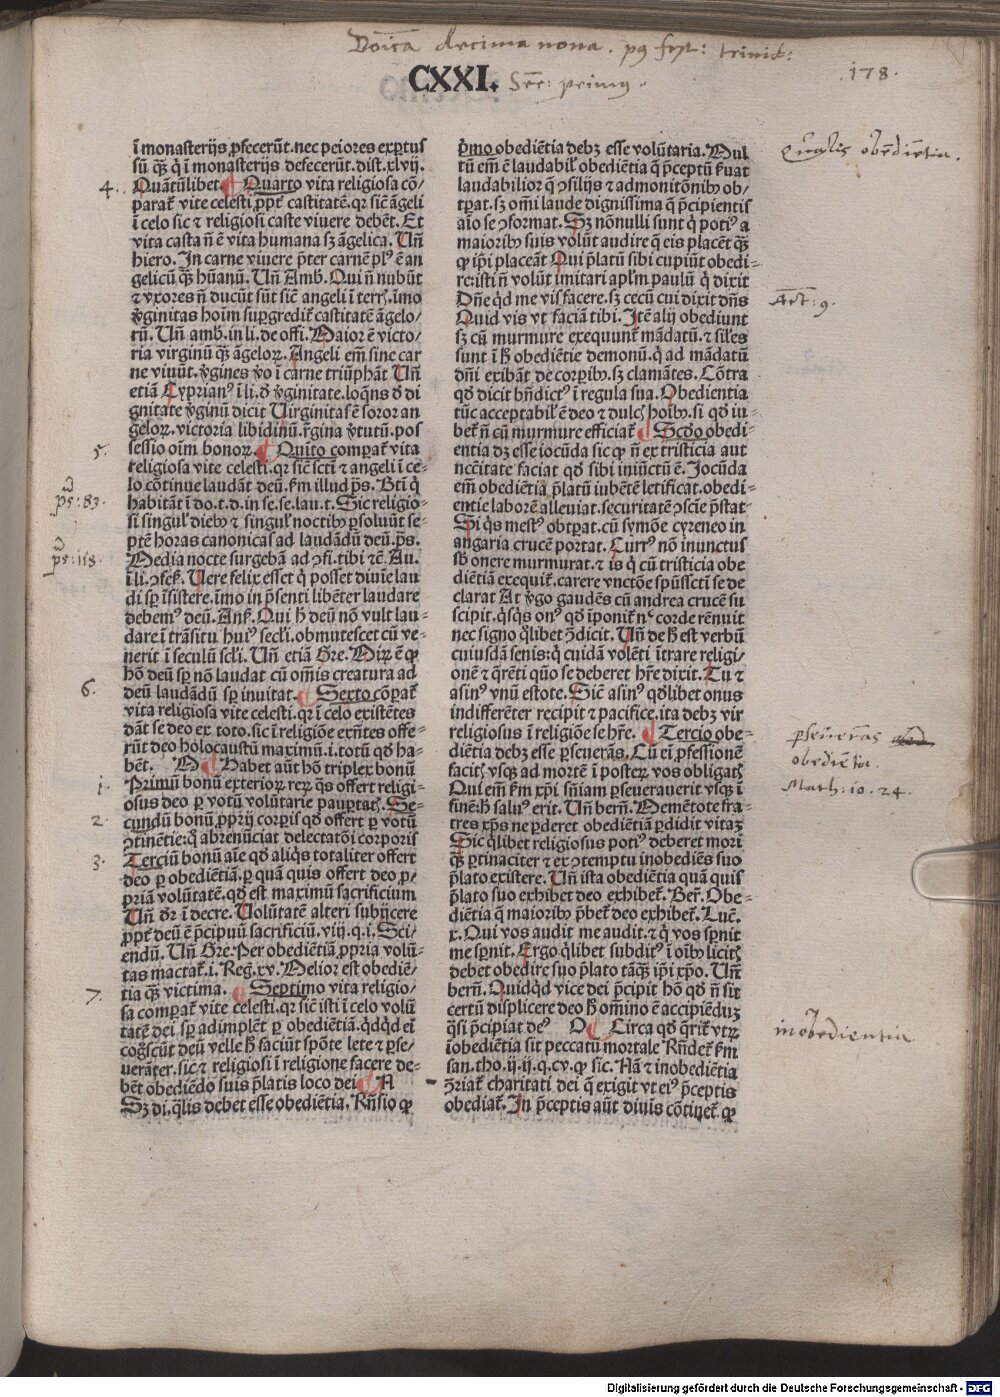 Doīca decima nona. pꝰ fest: trinit:
CXXI. Ser: primꝰ.
178.
ī monasterijs ꝓfecerūt. nec peiores expertus
sū qꝫ q̇ ī monasterijs defecerūt. dist. xlvij.
4. Quātūlibet ¶ Quarto vita religiosa cō/
parat᷑ vite celesti. ꝓpt᷑ castitatē. qꝛ sic̄ āgeli
ī celo sic ⁊ religiosi caste viuere debēt. Et
vita casta nō ē vita humana sꝫ āgelica. Un̄
hiero. In carne viuere p̄ter carnē plꝰ ē an
gelicū qꝫ hūanū. Un̄ Amb. Qui n̄ nubūt
⁊ vxores n̄ ducūt sūt sic̄ angeli ī terrꝭ. īmo
v̓ginitas hoīm suꝑgredit᷑ castitatē āgelo/
rū. Un̄ amb. in li. de offi. Maior ē victo/
ria virginū qꝫ āgeloꝝ. Angeli em̄ sine car
ne viuūt. v̓gines v̓o ī carne triūphāt Un̄
etiā Cyprianꝰ ī li. ď v̓ginitate. loq̄ns ď di
gnitate v̓ginū dicit Uirginitas ē soror an
geloꝝ. victoria libidinū. r̄gina v̓tutū. pos
5. sessio oīm bonoꝝ. ¶ Quīto comparat᷑ vita
religiosa vite celesti. qꝛ sic̄ sctī ⁊ angeli ī ce-
lo cōtinue laudāt deū. km̄ illud ps̄. Bt̄i q̇
ps̄: 83. habitāt ī do. t. d. in se. se. lau. t. Sic religio-
si singul᷑ dieb⁹ ⁊ singul᷑ noctib⁹ ꝑsoluūt se-
ptē horas canonicas ad laudādū deū. ps̄.
ps̄: 118. Media nocte surgebā ad ꝯfi. tibi ⁊c̄. Au.
ī li. ꝯfess. Uere felix esset q̇ posset diuīe lau
di sꝑ īsistere. īmo in p̄senti libēter laudare
debemꝰ deū. Ans. Qui h̄ deū nō vult lau-
dare ī trāsitu huiꝰ secl̓i. obmutescet cū ve-
nerit ī seculū scl̓i. Un̄ etiā Gre. Miꝝ ē ꝙ
hō deū sꝑ nō laudat cū om̄is creatura ad
6. deū laudādū sꝑ inuitat. ¶ Sexto cōpat᷑
vita religiosa vite celesti. qꝛ ī celo existētes
dāt se deo ex toto. sic ī religiōe exn̄tes offe-
rūt deo holocaustū maximū. i. totū qď ha-
bēt. M ¶ Habet aūt hō triplex bonū
1. Primū bonū exterioꝝ reꝝ qs̄ offert religi-
osus deo ꝑ votū volūtarie pauꝑtatꝭ. Se-
2. cundū bonū ꝓprij corꝑis qď offert ꝑ votū
ꝯtinētie. q̇ abrenūciat delectatōi corporis
3. Terciū bonū aīe qď aliqs̄ totaliter offert
deo ꝑ obediētiā. ꝑ quā quis offert deo ꝓ/
priā volūtatē. qď est maximū sacrificium
Un̄ dr̄ ī decre. Uolūtatē alteri subijcere
ꝓpt᷑ deū ē p̄cipuū sacrificiū. viij. q. i. Sci/
endū. Un̄ Gre. Per obediētiā ꝓpria volū-
tas mactat᷑. i. Reg. xv. Melior est obediē/
7. tia qꝫ victima. ¶ Septimo vita religio/
sa comparat᷑ vite celesti. qꝛ sic̄ isti ī celo volū
tatē dei sꝑ adimplēt ꝑ obediētiā. qd̓qd̓ ei
cog̓scūt deū velle h̄ faciūt spōte lete ⁊ ꝑse/
uerāter. sic ⁊ religiosi ī religione facere de-
bēt obediēdo suis p̄latis loco dei ¶ N
Sꝫ di. q̄lis debet esse obediētia. Rn̄sio ꝙ
p̄mo obediētia debꝫ esse volūtaria. Mul
tū em̄ ē laudabil᷑ obediētia q̄ p̄ceptū s̓uat
laudabilior q̄ ꝯsilijs ⁊ admonitōnib⁹ ob/
tꝑat. sꝫ om̄i laude dignissima q̄ p̄cipientis
aīo se ꝯformat. Sꝫ nōnulli sunt q̇ potiꝰ a
maiorib⁹ suis volūt audire q̄ eis placēt qꝫ
ꝙ ip̄i placeāt Qui p̄latū sibi cupiūt obedi-
re: isti n̄ volūt imitari apl̄m paulū q̇ dixit
Dn̄e qd̓ me vis facere. sꝫ cecū cui dixit dn̄s
Quid vis vt faciā tibi. Itē alij obediunt
sꝫ cū murmure exequunt᷑ mādatū. ⁊ siles
sunt ī h̄ obediētie demonū. q̇ ad mādatū
dn̄i exibāt de corꝑib⁹. sꝫ clamātes. Cōtra
qď dicit bn̄dictꝰ ī regula sua. Obedientia
tūc acceptabil᷑ ē deo ⁊ dulcꝭ hoīb⁹. si qď iu-
bet᷑ n̄ cū murmure efficiat᷑ ¶ Scďo obedi-
entia dꝫ esse iocūda sic ꝙ n̄ ex tristicia aut
nccītate faciat qď sibi iniūctū ē. Jocūda
em̄ obediētia p̄latū iubētē letificat. obedi-
entie laborē alleuiat. securitatē ꝯscīe p̄stat
Si qs̄ mestꝰ obtꝑat. cū symōe cyreneo in
angaria crucē portat. Currꝰ nō inunctus
sb̓ onere murmurat. ⁊ is q̇ cū tristicia obe
diētiā exequit᷑. carere vnctōe sp̄ussctī se de
clarat At v̓go gaudēs cū andrea crucē su
scipit. q̇sqs̄ onꝰ qď īponit᷑ nᶜ corde rēnuit
nec signo q̄libet ꝯ̄dicit. Un̄ de h̄ est verbū
cuiusdā senis: q̇ cuidā volēti ītrare religi/
onē ⁊ q̄rēti quō se deberet hr̄e dixit. Tu ⁊
asinꝰ vnū estote. Sic̄ asinꝰ qd̓libet onus
indifferēter recipit ⁊ pacifice. ita debꝫ vir
religiosus ī religiōe se hr̄e. ¶ Tercio obe-
diētia debꝫ esse ꝑseuerās. Cū em̄ ꝓfessionē
facitꝭ vsqꝫ ad mortē ī posteꝝ vos obligatꝭ
Qui em̄ km̄ xp̄i sn̄iam ꝑseuerauerit vsqꝫ ī
finē: h̄ saluꝰ erit. Un̄ bern̄. Memētote fra-
tres xp̄s ne ꝑderet obediētiā ꝑdidit vitaꝫ
Sic q̄libet religiosus potiꝰ deberet mori
qꝫ ꝑtinaciter ⁊ ex ꝯtemptu inobediēs suo
p̄lato existere. Un̄ ista obediētia quā quis
p̄lato suo exhibet deo exhibet᷑. Ber̄. Obe-
diētia q̄ maiorib⁹ p̄bet᷑ deo exhibet᷑. Luc̄.
x. Qui vos audit me audit. ⁊ q̇ vos sꝑnit
me sꝑnit. Ergo q̄libet subditꝰ ī oīb⁹ licitꝭ
debet obedire suo p̄lato tāqꝫ ip̄i xp̄o. Un̄
bern̄. Quidqd̓ vice dei p̄cipit hō qď n̄ sit
certū displicere deo h̄ omnino ē accipiēduꝫ
q̄si p̄cipiat deꝰ O ¶ Circa qď q̄rit᷑ vtꝝ
īobediētia sit peccatū mortale Rn̄det᷑ km̄
san. tho. ij. ij. q. cv. ꝙ sic. Nā ⁊ inobediētia
ꝯ̄riat᷑ charitati dei q̄ exigit vt eiꝰ p̄ceptis
obediat᷑. In p̄ceptis aūt diuīs cōtinet᷑ ꝙ
Qualis obediētia.
Act: 9.
ꝑseuerās
obediētia.
Math: 10. 24.
inobedientia
Digitalisierung gefördert durch die Deutsche Forschungsgemeinschaft - DFG